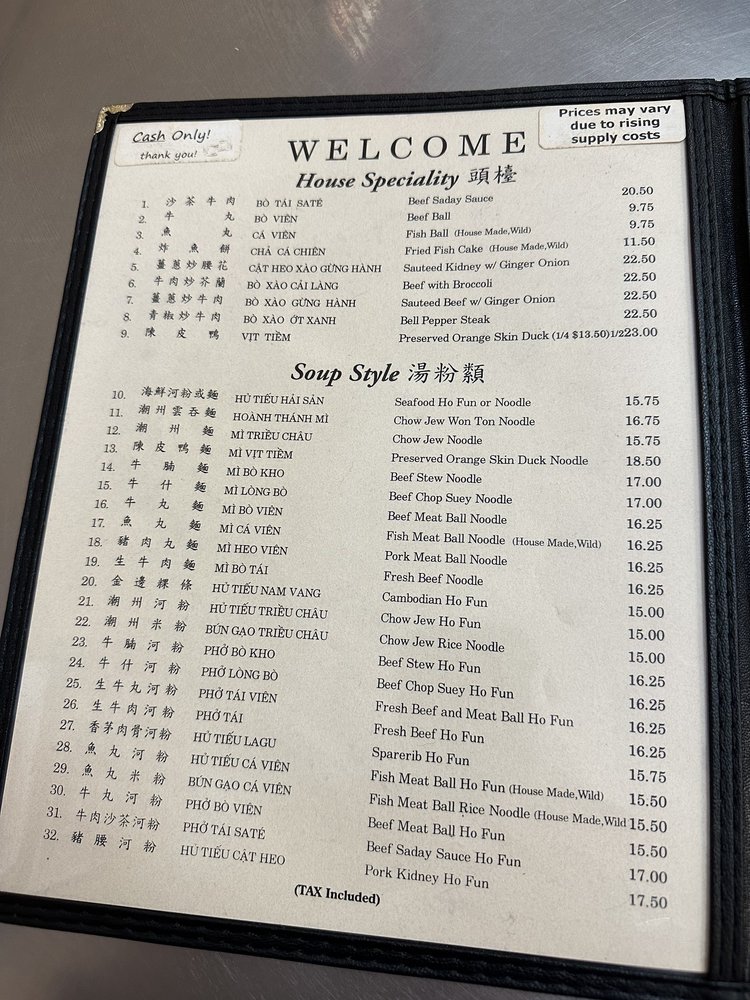 Cash Only!
thank you!
Prices may vary
due to rising
supply costs
WELCOME
House Speciality 頭檯
1. 沙茶牛肉 BÒ TÁI SATÉ Beef Saday Sauce 20.50
2. 牛丸 BÒ VIÊN Beef Ball 9.75
3. 魚丸 CÁ VIÊN Fish Ball (House Made,Wild) 9.75
4. 炸魚餅 CHẢ CÁ CHIÊN Fried Fish Cake (House Made,Wild) 11.50
5. 薑蔥炒腰花 CẬT HEO XÀO GỪNG HÀNH Sauteed Kidney w/ Ginger Onion 22.50
6. 牛肉炒芥蘭 BÒ XÀO CẢI LÀNG Beef with Broccoli 22.50
7. 薑蔥炒牛肉 BÒ XÀO GỪNG HÀNH Sauteed Beef w/ Ginger Onion 22.50
8. 青椒炒牛肉 BÒ XÀO ỚT XANH Bell Pepper Steak 22.50
9. 陳皮鴨 VỊT TIỀM Preserved Orange Skin Duck (1/4 $13.50)1/2 23.00
Soup Style 湯粉類
10. 海鮮河粉或麵 HỦ TIẾU HẢI SẢN Seafood Ho Fun or Noodle 15.75
11. 潮州雲吞麵 HOÀNH THÁNH MÌ Chow Jew Won Ton Noodle 16.75
12. 潮州麵 MÌ TRIỀU CHÂU Chow Jew Noodle 15.75
13. 陳皮鴨麵 MÌ VỊT TIỀM Preserved Orange Skin Duck Noodle 18.50
14. 牛腩麵 MÌ BÒ KHO Beef Stew Noodle 17.00
15. 牛什麵 MÌ LÒNG BÒ Beef Chop Suey Noodle 17.00
16. 牛丸麵 MÌ BÒ VIÊN Beef Meat Ball Noodle 16.25
17. 魚丸麵 MÌ CÁ VIÊN Fish Meat Ball Noodle (House Made,Wild) 16.25
18. 豬肉丸麵 MÌ HEO VIÊN Pork Meat Ball Noodle 16.25
19. 生牛肉麵 MÌ BÒ TÁI Fresh Beef Noodle 16.25
20. 金邊粿條 HỦ TIẾU NAM VANG Cambodian Ho Fun 15.00
21. 潮州河粉 HỦ TIẾU TRIỀU CHÂU Chow Jew Ho Fun 15.00
22. 潮州米粉 BÚN GẠO TRIỀU CHÂU Chow Jew Rice Noodle 15.00
23. 牛腩河粉 PHỞ BÒ KHO Beef Stew Ho Fun 16.25
24. 牛什河粉 PHỞ LÒNG BÒ Beef Chop Suey Ho Fun 16.25
25. 生牛丸河粉 PHỞ TÁI VIÊN Fresh Beef and Meat Ball Ho Fun 16.25
26. 生牛肉河粉 PHỞ TÁI Fresh Beef Ho Fun 16.25
27. 香茅肉骨河粉 HỦ TIẾU LAGU Sparerib Ho Fun 15.75
28. 魚丸河粉 HỦ TIẾU CÁ VIÊN Fish Meat Ball Ho Fun (House Made,Wild) 15.50
29. 魚丸米粉 BÚN GẠO CÁ VIÊN Fish Meat Ball Rice Noodle (House Made,Wild 15.50
30. 牛丸河粉 PHỞ BÒ VIÊN Beef Meat Ball Ho Fun 15.50
31. 牛肉沙茶河粉 PHỞ TÁI SATÉ Beef Saday Sauce Ho Fun 17.00
32. 豬腰河粉 HỦ TIẾU CẬT HEO Pork Kidney Ho Fun 17.50
(TAX Included)